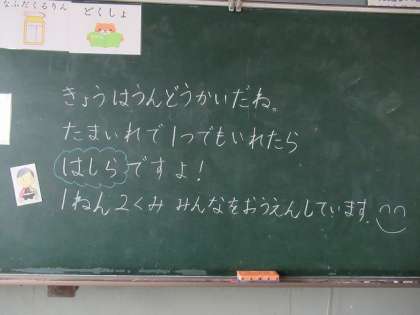 なふだくるりん
どくしょ
きょうはうんどうかいだね。
たまいれで1つでもいれたら
はしらですよ!
1ねん2くみ みんなをおうえんしています。